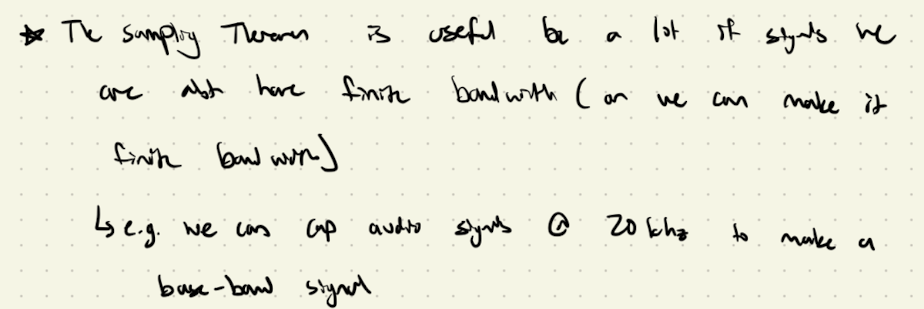 ★ The Sampling Theorem is useful bc a lot of signals we
are abt have finite bandwith (or we can make it
finite bandwith)
↳ e.g. we can cap audio signals @ 20 khz to make a
base-band signal